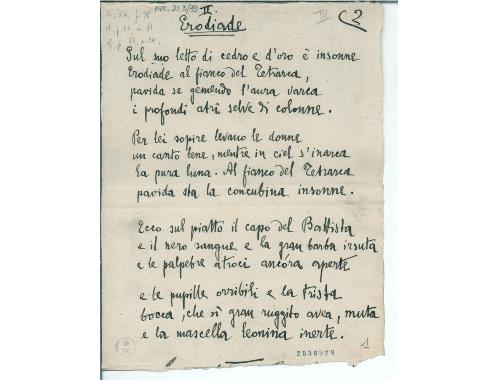 II.
Erodiade
2
IV
Sul suo letto di cedro e d'oro è insonne
Erodiade al fianco del Tetrarca,
pavida se gemendo l'aura varca
i profondi atrî selve di colonne.
Per lei sopire levano le donne
un canto lene, mentre in ciel s'inarca
la pura luna. Al fianco del Tetrarca
pavida sta la concubina insonne.
Ecco sul piatto il capo del Battista
e il nero sangue e la gran barba irsuta
e le palpebre atroci ancóra aperte
e le pupille orribili e la trista
bocca, che sì gran ruggito avea, muta
e la mascella leonina inerte.
2838928
1